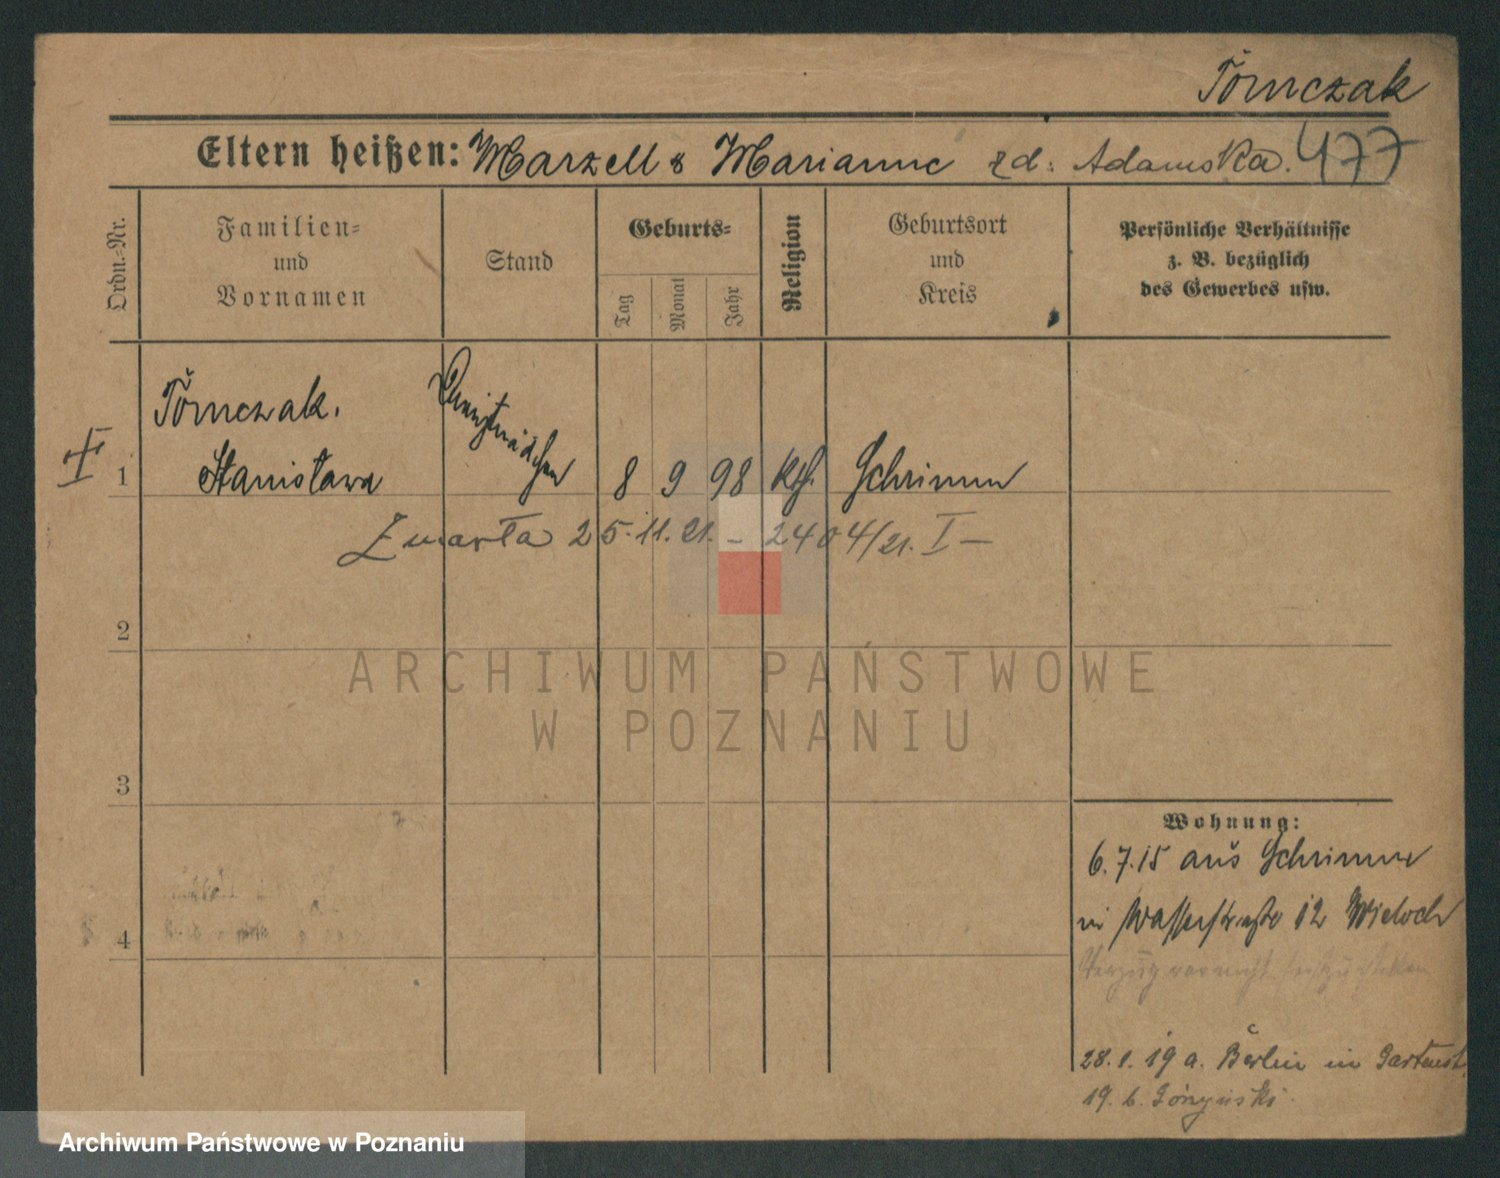 Tomczak
Eltern heißen: Marzell & Marianne zd: Adamska. 477
Ordn.-Nr.
Familien- und Vornamen
Stand
Geburts-
Tag
Monat
Jahr
Religion
Geburtsort und Kreis
Persönliche Verhältnisse
z. B. bezüglich
des Gewerbes usw.
Tomczak.
1 Stanisława Dienstmädchen 8 9 98 kth. Schrimm
Zmarła 25.11.21. – 2404/21. I –
2
ARCHIWUM PAŃSTWOWE
W POZNANIU
3
Wohnung:
6.7.15 aus Schrimm
in Wasserstraße 12 Wieloch
4
28.1.19 a. Berlin in Gartenst.
19. b.
Archiwum Państwowe w Poznaniu